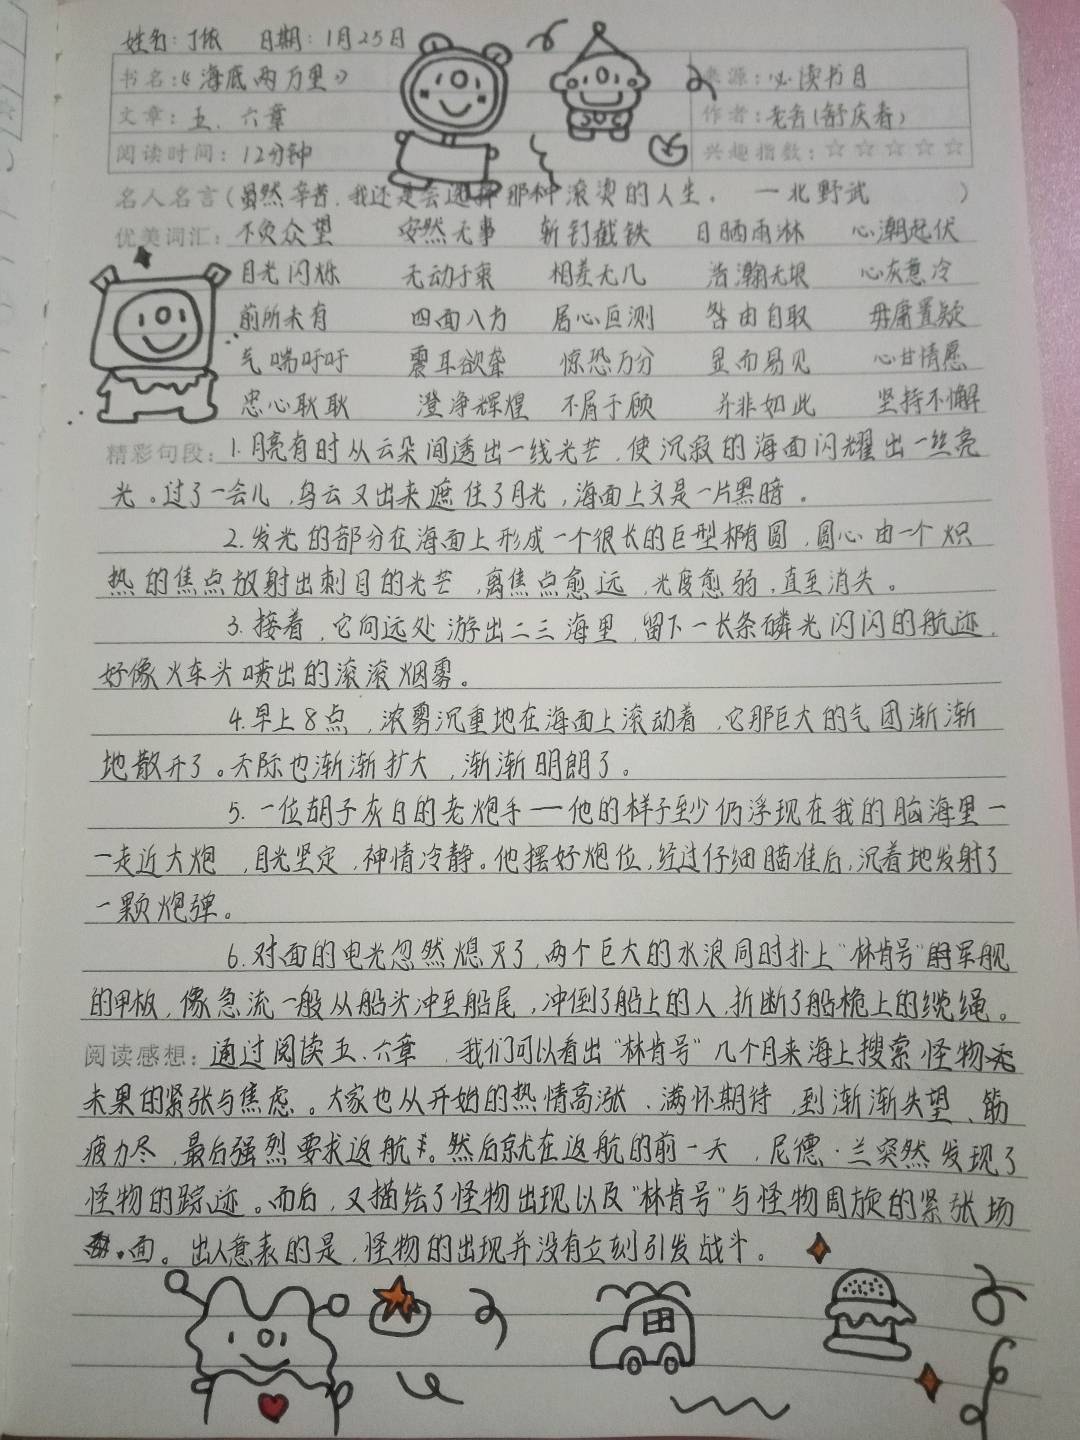 姓名：丁依 日期：1月25日
书名：《海底两万里》 来源：必读书目
文章：五、六章 作者：老舍(舒庆春)
阅读时间：12分钟 兴趣指数：☆☆☆☆☆
名人名言(虽然辛苦，我还是会选择那种滚烫的人生。 —北野武 )
优美词汇：不负众望 安然无事 斩钉截铁 日晒雨淋 心潮起伏
目光闪烁 无动于衷 相差无几 浩瀚无垠 心灰意冷
前所未有 四面八方 居心叵测 咎由自取 毋庸置疑
气喘吁吁 震耳欲聋 惊恐万分 显而易见 心甘情愿
忠心耿耿 澄净辉煌 不屑于顾 并非如此 坚持不懈
精彩句段：1.月亮有时从云朵间透出一线光芒，使沉寂的海面闪耀出一丝亮
光。过了一会儿，乌云又出来遮住了月光，海面上又是一片黑暗。
2.发光的部分在海面上形成一个很长的巨型椭圆，圆心由一个炽
热的焦点放射出刺目的光芒，离焦点愈远，光度愈弱，直至消失。
3.接着，它向远处游出二三海里，留下一长条磷光闪闪的航迹，
好像火车头喷出的滚滚烟雾。
4.早上8点，浓雾沉重地在海面上滚动着，它那巨大的气团渐渐
地散开了。天际也渐渐扩大，渐渐明朗了。
5.一位胡子灰白的老炮手——他的样子至少仍浮现在我的脑海里—
—走近大炮，目光坚定，神情冷静。他摆好炮位，经过仔细瞄准后，沉着地发射了
一颗炮弹。
6.对面的电光忽然熄灭了，两个巨大的水浪同时扑上“林肯号”军舰
的甲板，像急流一般从船头冲至船尾，冲倒了船上的人，折断了船桅上的缆绳。
阅读感想：通过阅读五、六章，我们可以看出“林肯号”几个月来海上搜索怪物
未果的紧张与焦虑。大家也从开始的热情高涨、满怀期待，到渐渐失望、筋
疲力尽，最后强烈要求返航。然后就在返航的前一天，尼德·兰突然发现了
怪物的踪迹。而后，又描绘了怪物出现以及“林肯号”与怪物周旋的紧张场
面。出人意表的是，怪物的出现并没有立刻引发战斗。